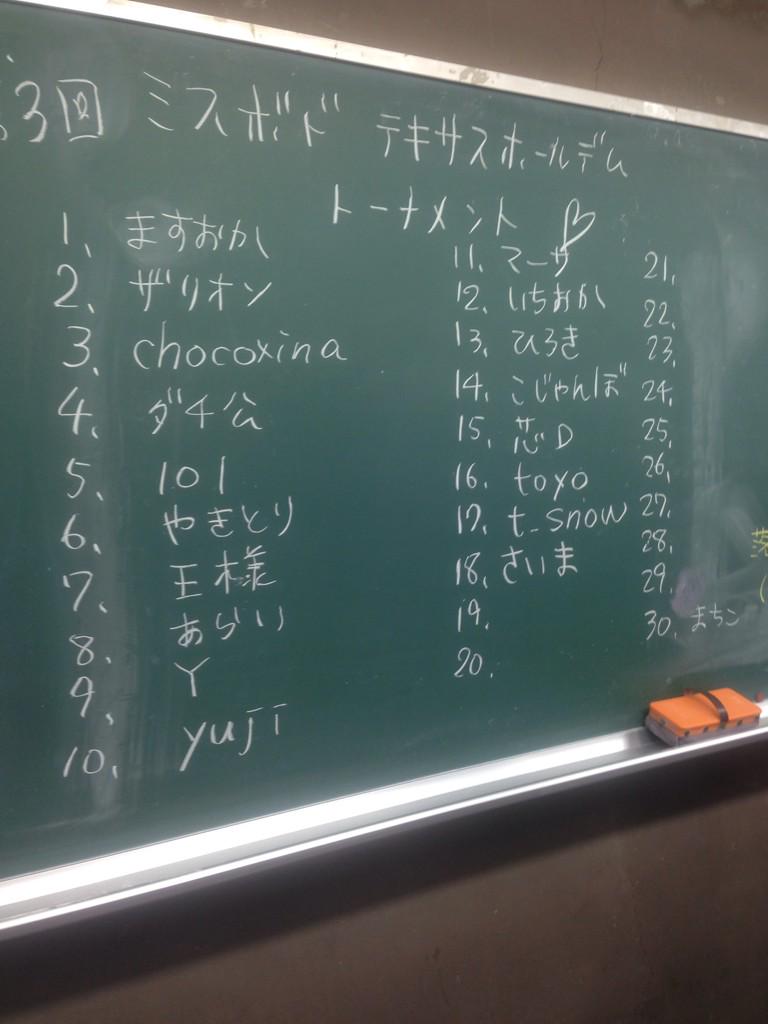 第3回 ミスボド テキサスホールデム
トーナメント ♡
1、ますおか
2、ザリオン
3、chocoxina
4、ダチ公
5、101
6、やきとり
7、王様
8、あらい
9、Y
10、yuji
11、マーサ
12、いちおか
13、ひろき
14、こじゃんぼ
15、芯D
16、toyo
17、t_snow
18、さいま
19、
20、
21、
22、
23、
24、
25、
26、
27、
28、
29、
30、まちこ
落
(